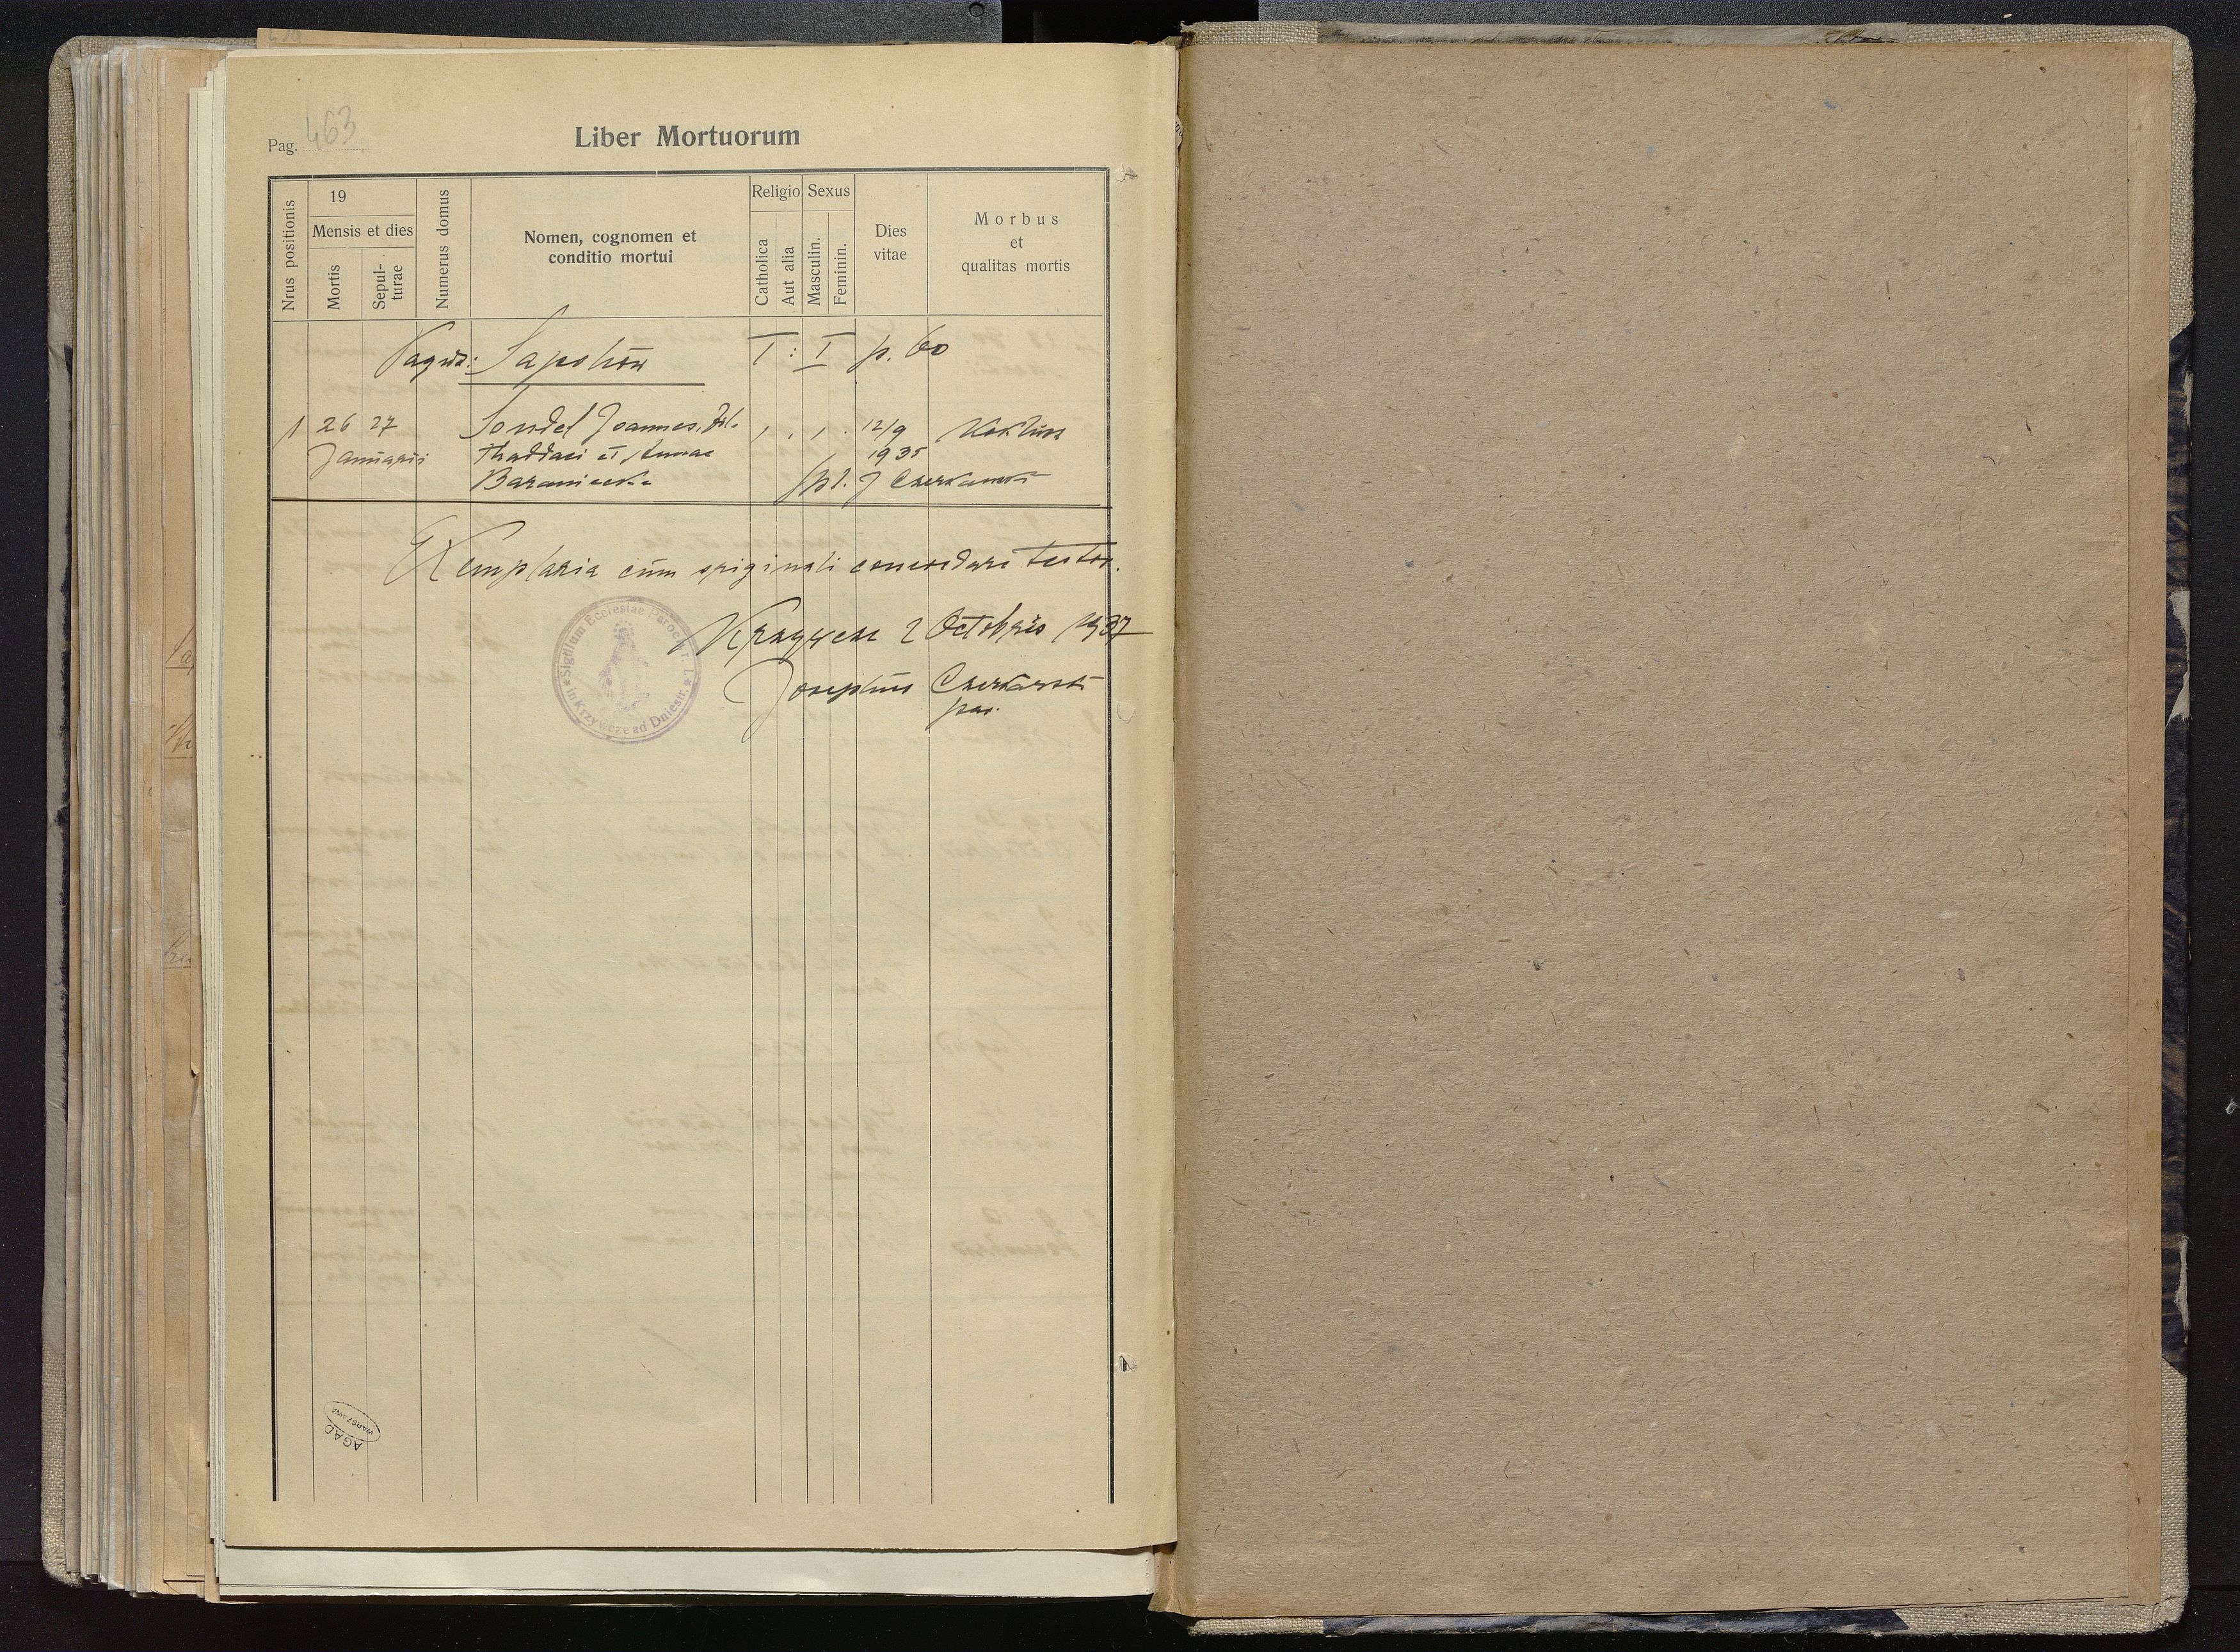 Pag. 463
Liber Mortuorum
Nrus positionis
19
Mensis et dies
Mortis
Sepul-
turae
Numerus domus
Nomen, cognomen et
conditio mortui
Religio
Catholica
Aut alia
Sexus
Masculin.
Feminin.
Dies
vitae
Morbus
et
qualitas mortis
Pagus: Sapohów I : I p. 60
1 26 27 Sondel Joannes, fil. 12/9 Koklusz
Januarii Thaddaei et Annae 1935
Baraniecka /pl. J Czerkawski
Exemplaria cum originali concordare testor.
Krzywcze 2 Octobris 1937
Josephus Czerkawski
par.
Sigillum Ecclesiae Paroch. r. l.
in Krzywcze ad Dniestr.
AGAD
WARSZAWA